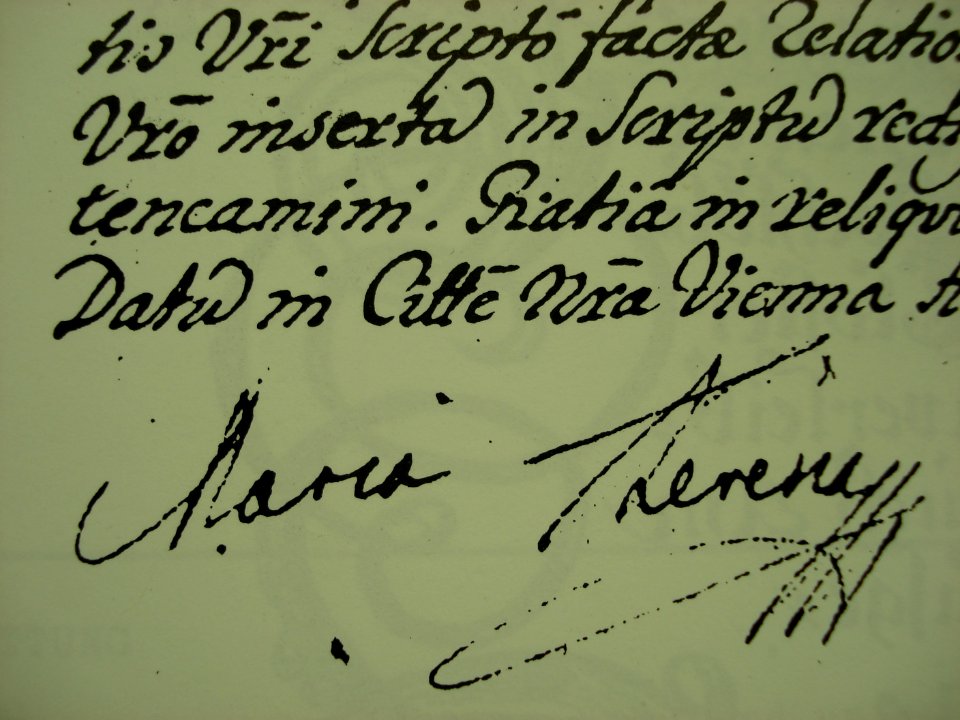 tis Vr̄i Scriptō factæ Relatio
Vrō insertā in Scriptū red
tencamini. Gratiā in reliqu
Datū in Cittē Nrā Vienna
Maria Theresia